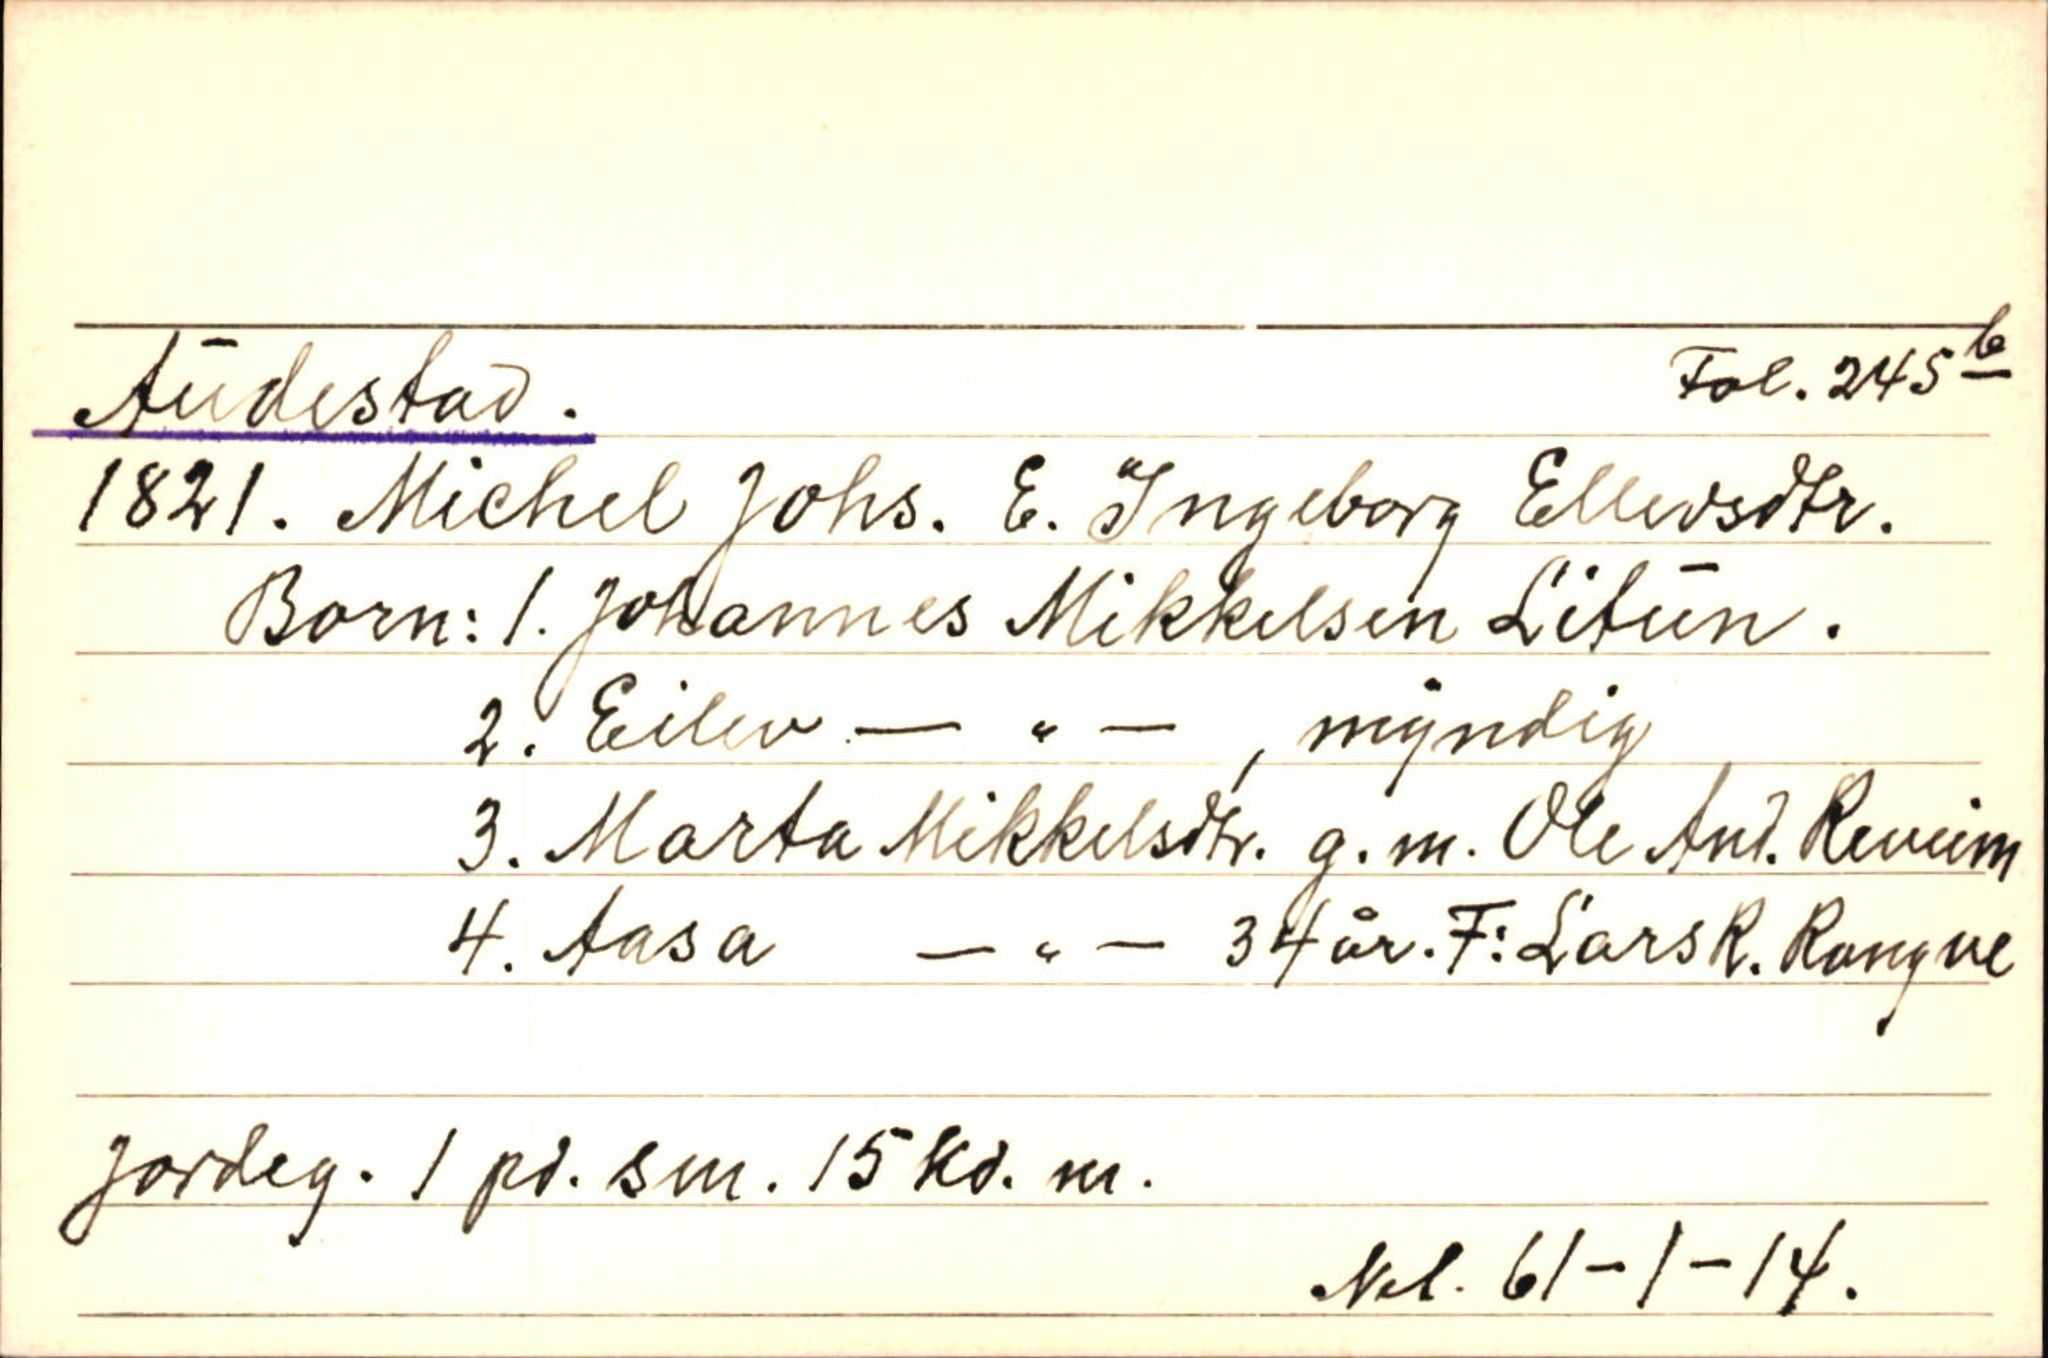 Audestad. Fol. 245 b
1821. Michel Johs. E. Ingeborg Ellevsdtr.
Born: 1. Johannes Mikkelsen Litun.
2. Eilev — " — , myndig
3. Marta Mikkelsdtr. g. m. Ole And. Reveim
4. Aasa — " — 34 år. F: Lars R. Rongve
Jordeg. 1 pd. sm. 15 kd. m.
Nel. 61-1-14.